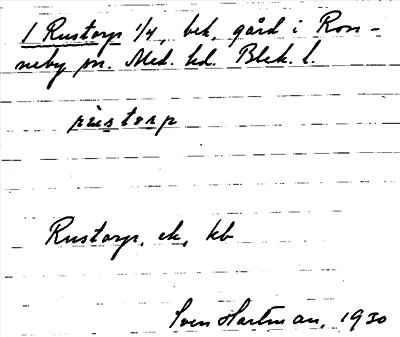 1 Rustorp 1/4, bek. gård i Ron-
neby sn. Med. hd. Blek. l.
rùstɔrp
Rustorp, ek, kb
Sven Hartman, 1930